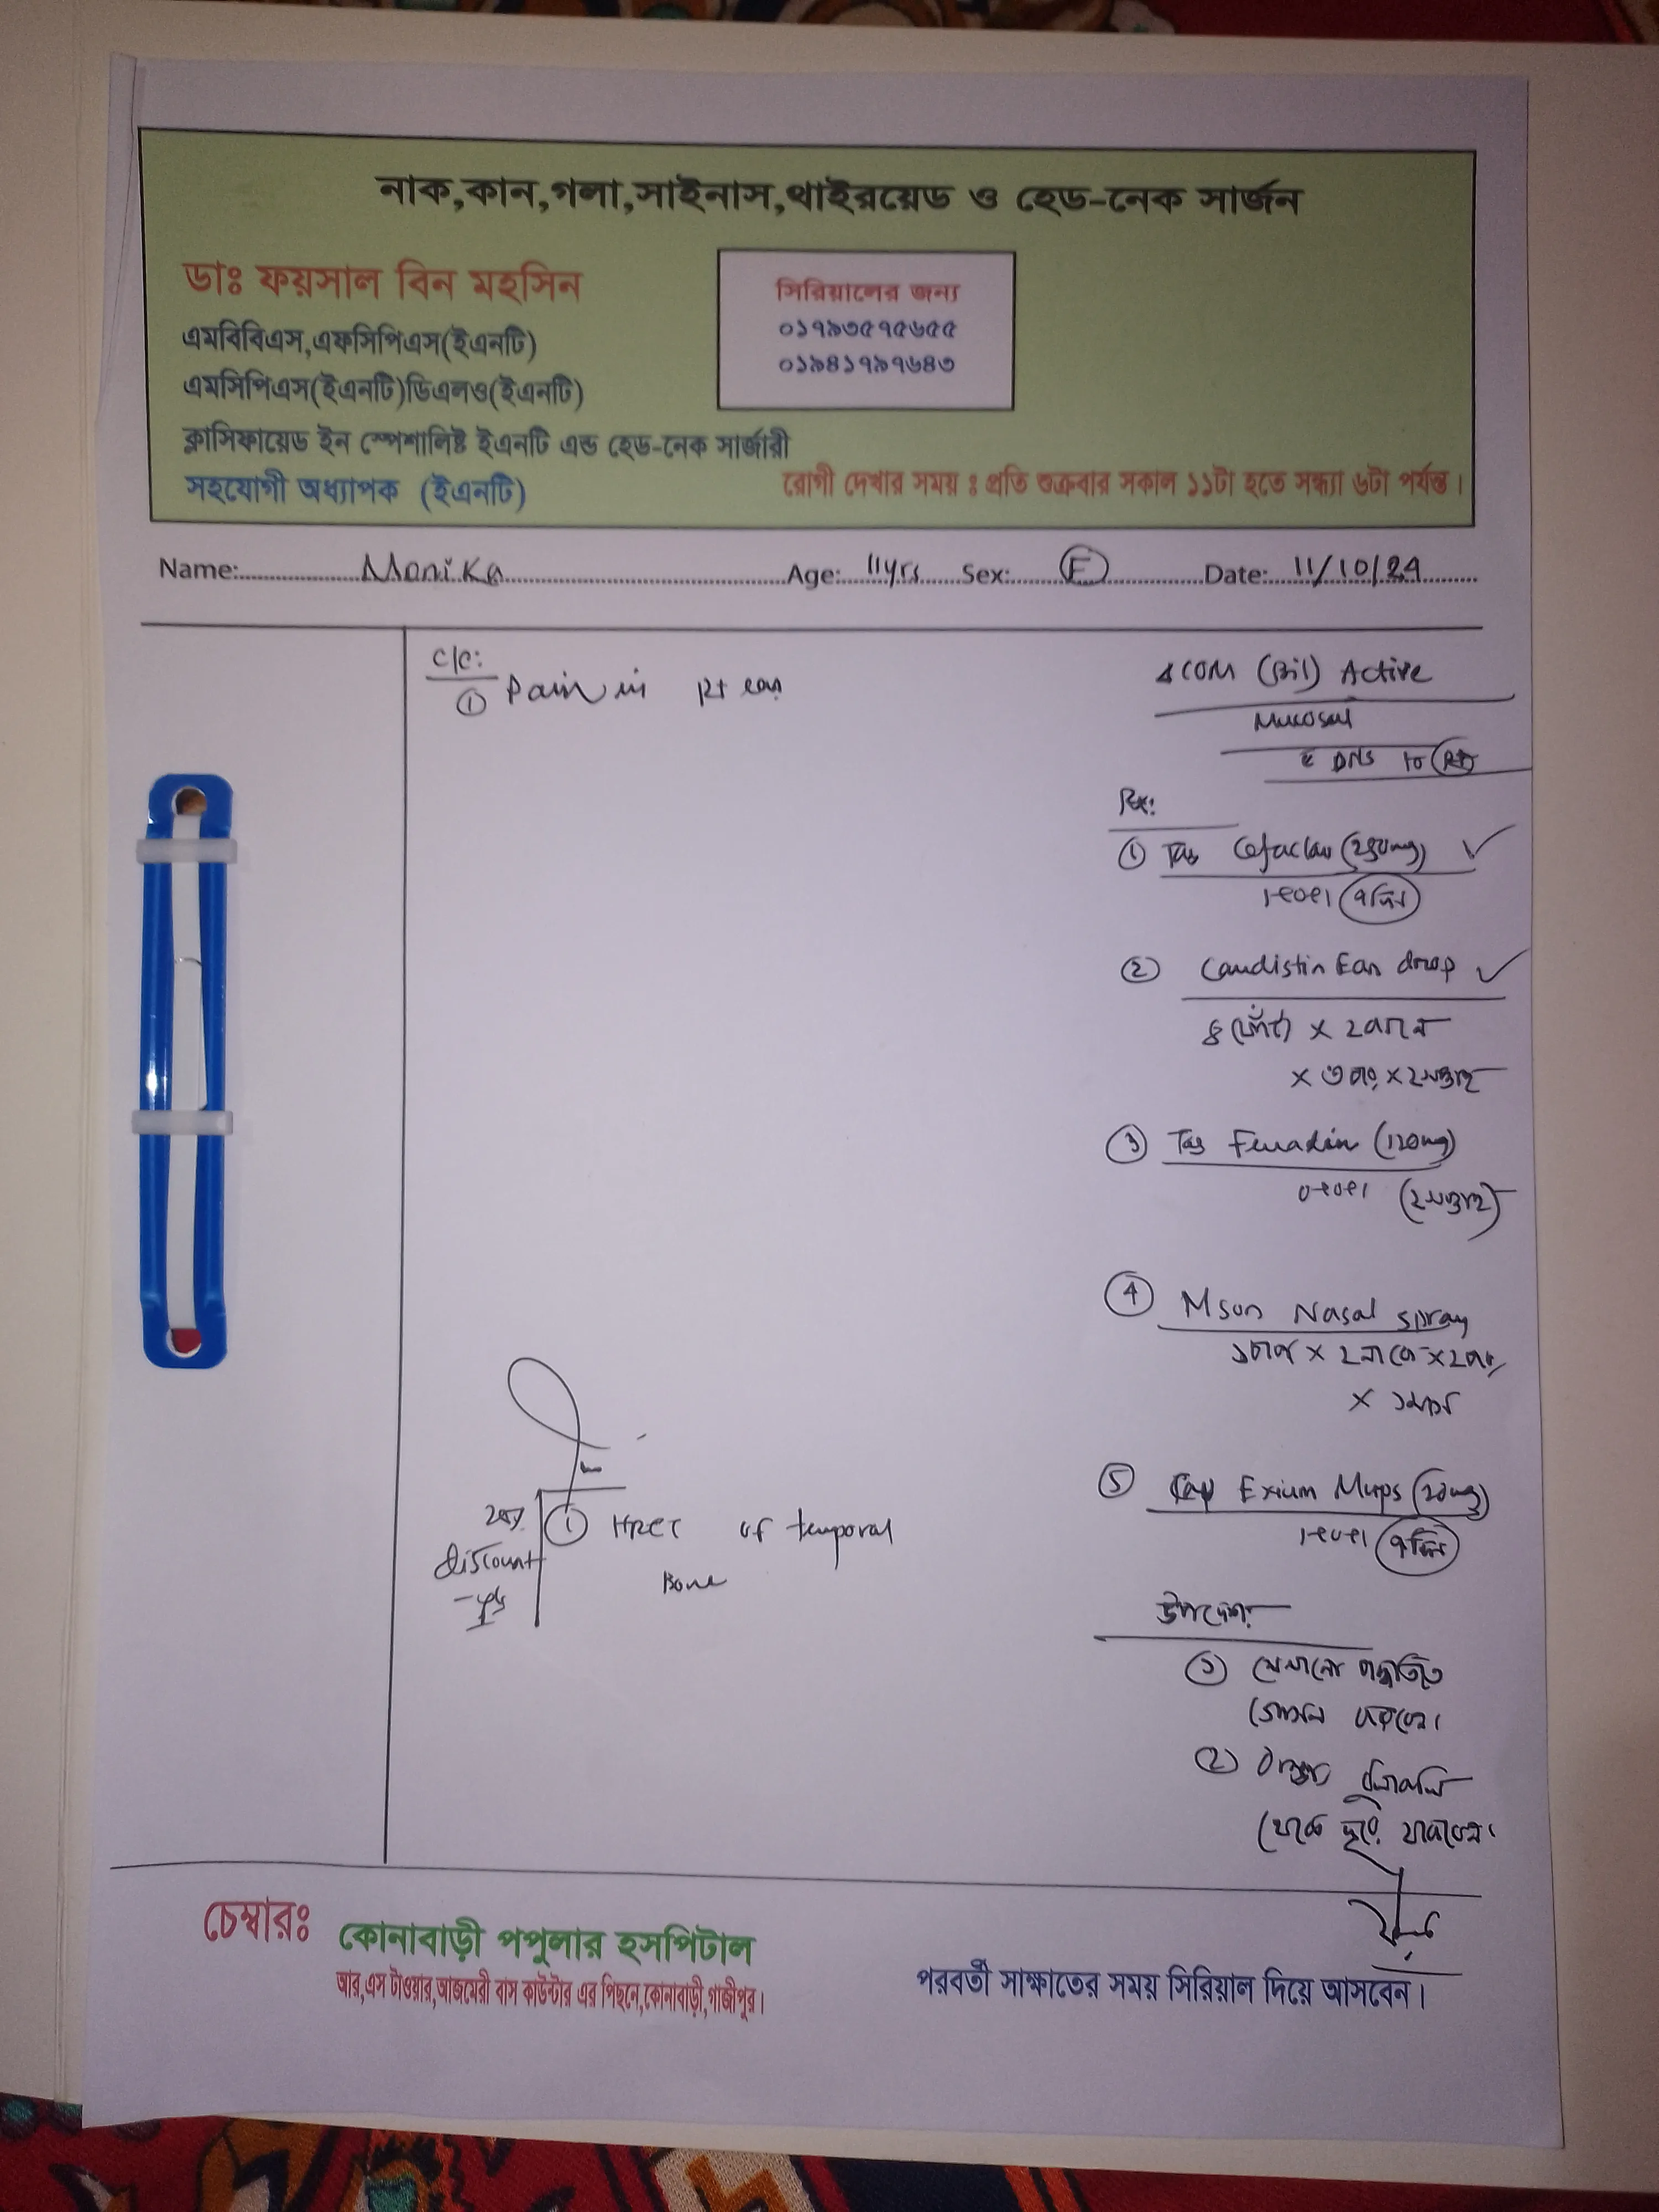 নাক,কান,গলা,সাইনাস,থাইরয়েড ও হেড-নেক সার্জন
ডাঃ ফয়সাল বিন মহসিন
এমবিবিএস,এফসিপিএস(ইএনটি)
এমসিপিএস(ইএনটি)ডিএলও(ইএনটি)
ক্লাসিফায়েড ইন স্পেশালিষ্ট ইএনটি এন্ড হেড-নেক সার্জারী
সহযোগী অধ্যাপক (ইএনটি)
সিরিয়ালের জন্য
০১৭৯৩৫৭৫৬৫৫
০১৯৪১৭৯৭৬৪৩
রোগী দেখার সময় ঃ প্রতি শুক্রবার সকাল ১১টা হতে সন্ধ্যা ৬টা পর্যন্ত।
Name: Monika Age: 11yrs Sex: F Date: 11/10/24
C/C:
① Pain in Rt ear
COM (Bil) Active
Mucosal
DNS to Rt
Rx:
① Tab (250mg)
1+0+1 ৭দিন
② Ear drop
৪ ফোঁটা × ২কানে
× ৩ বার × ২সপ্তাহ
③ Tab (120mg)
0+0+1 (২সপ্তাহ)
④ Mson Nasal spray
১চাপ × ২নাকে × ২বার
× ১মাস
⑤ Cap Exium Mups (20mg)
1+0+1 ৭দিন
উপদেশ:
① পদ্ধতিতে
গোসল করবেন।
②
থেকে দূরে থাকবেন।
① HRCT of temporal
Bone
discount
চেম্বারঃ
কোনাবাড়ী পপুলার হসপিটাল
আর,এস টাওয়ার,আজমেরী বাস কাউন্টার এর পিছনে,কোনাবাড়ী,গাজীপুর।
পরবর্তী সাক্ষাতের সময় সিরিয়াল দিয়ে আসবেন।